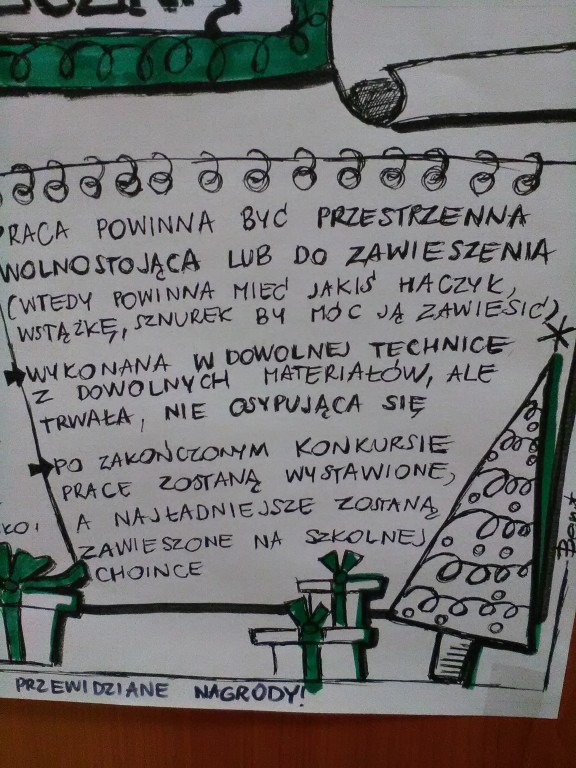 PRACA POWINNA BYĆ PRZESTRZENNA
WOLNOSTOJĄCA LUB DO ZAWIESZENIA
(WTEDY POWINNA MIEĆ JAKIŚ HACZYK,
WSTĄŻKĘ, SZNUREK BY MÓC JĄ ZAWIESIĆ)
WYKONANA W DOWOLNEJ TECHNICE
Z DOWOLNYCH MATERIAŁÓW, ALE
TRWAŁA, NIE OSYPUJĄCA SIĘ
PO ZAKOŃCZONYM KONKURSIE
PRACE ZOSTANĄ WYSTAWIONE,
A NAJŁADNIEJSZE ZOSTANĄ
ZAWIESZONE NA SZKOLNEJ
CHOINCE
PRZEWIDZIANE NAGRODY!